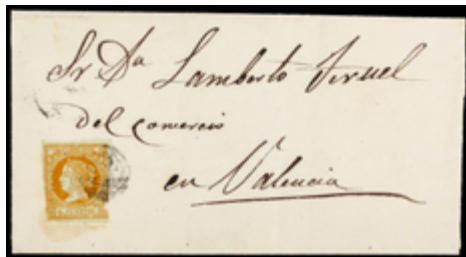 Sr Dn Lamberto Teruel
del Comercio
en Valencia